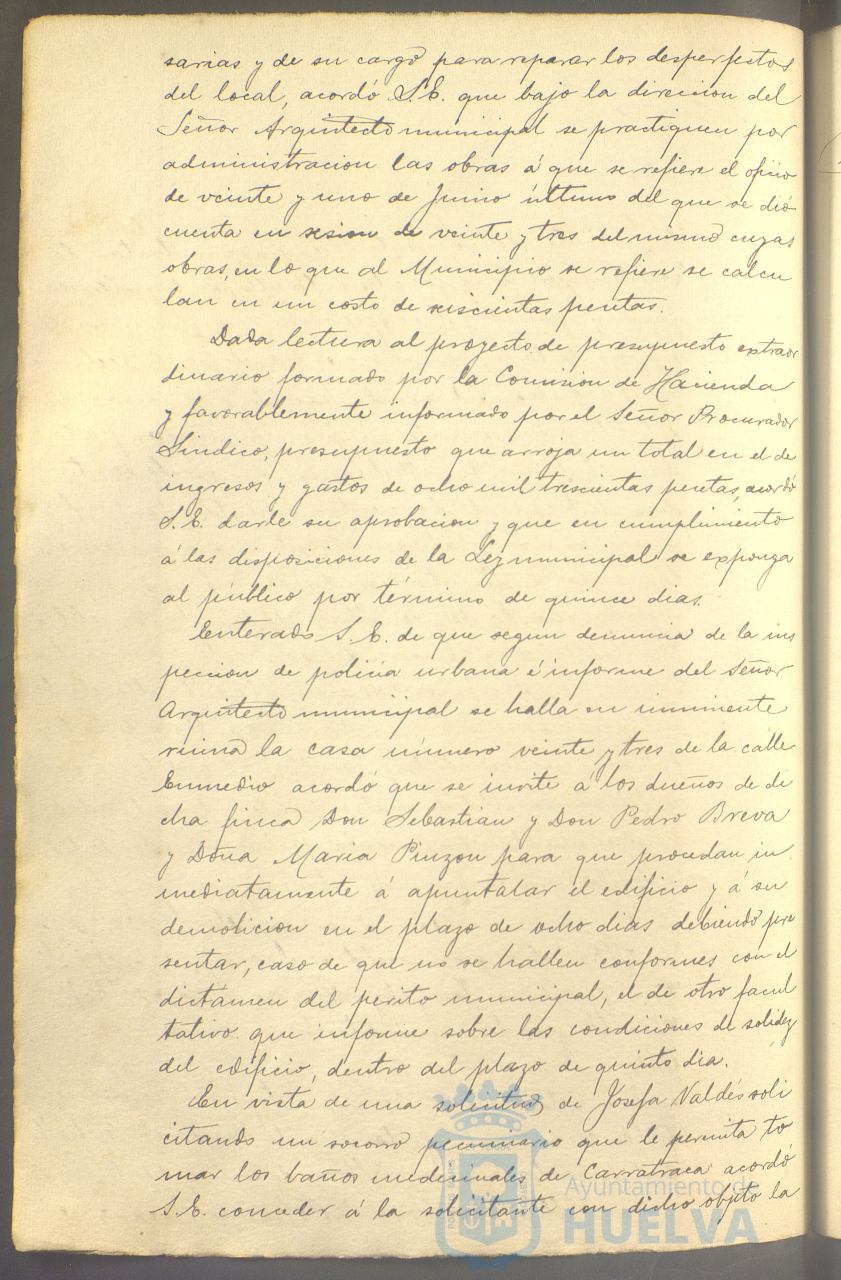 sarias y de su cargo para reparar los desperfectos
del local, acordó S.E. que bajo la direccion del
Señor Arquitecto municipal se practiquen por
administracion las obras á que se refiere el oficio
de veinte y uno de Junio último del que se dió
cuenta en sesion de veinte y tres del mismo cuyas
obras, en lo que al Municipio se refiere se calcu
lan en un costo de seiscientas pesetas.
Dada lectura al proyecto de presupuesto extraor
dinario formado por la Comision de Hacienda
y favorablemente informado por el Señor Procurador
Sindico, presupuesto que arroja un total en el de
ingresos y gastos de ocho mil trescientas pesetas, acordó
S.E. darle su aprobacion y que en cumplimiento
á las disposiciones de la Ley municipal se exponga
al público por término de quince dias.
Enterado S.E. de que segun denuncia de la ins
peccion de policía urbana é informe del Señor
Arquitecto municipal se halla en inminente
ruina la casa número veinte y tres de la calle
Enmedio acordó que se invite á los dueños de di
cha finca Don Sebastian y Don Pedro Breva
y Doña Maria Pinzon para que procedan in
mediatamente á apuntalar el edificio y á su
demolicion en el plazo de ocho dias debiendo pre
sentar, caso de que no se hallen conformes con el
dictamen del perito municipal, el de otro facul
tativo que informe sobre las condiciones de solidez
del edificio, dentro del plazo de quinto dia.
En vista de una solicitud de Josefa Valdés soli
citando un socorro pecuniario que le permita to
mar los baños medicinales de Carratraca acordó
S.E. conceder á la solicitante con dicho objeto la
Ayuntamiento de
HUELVA